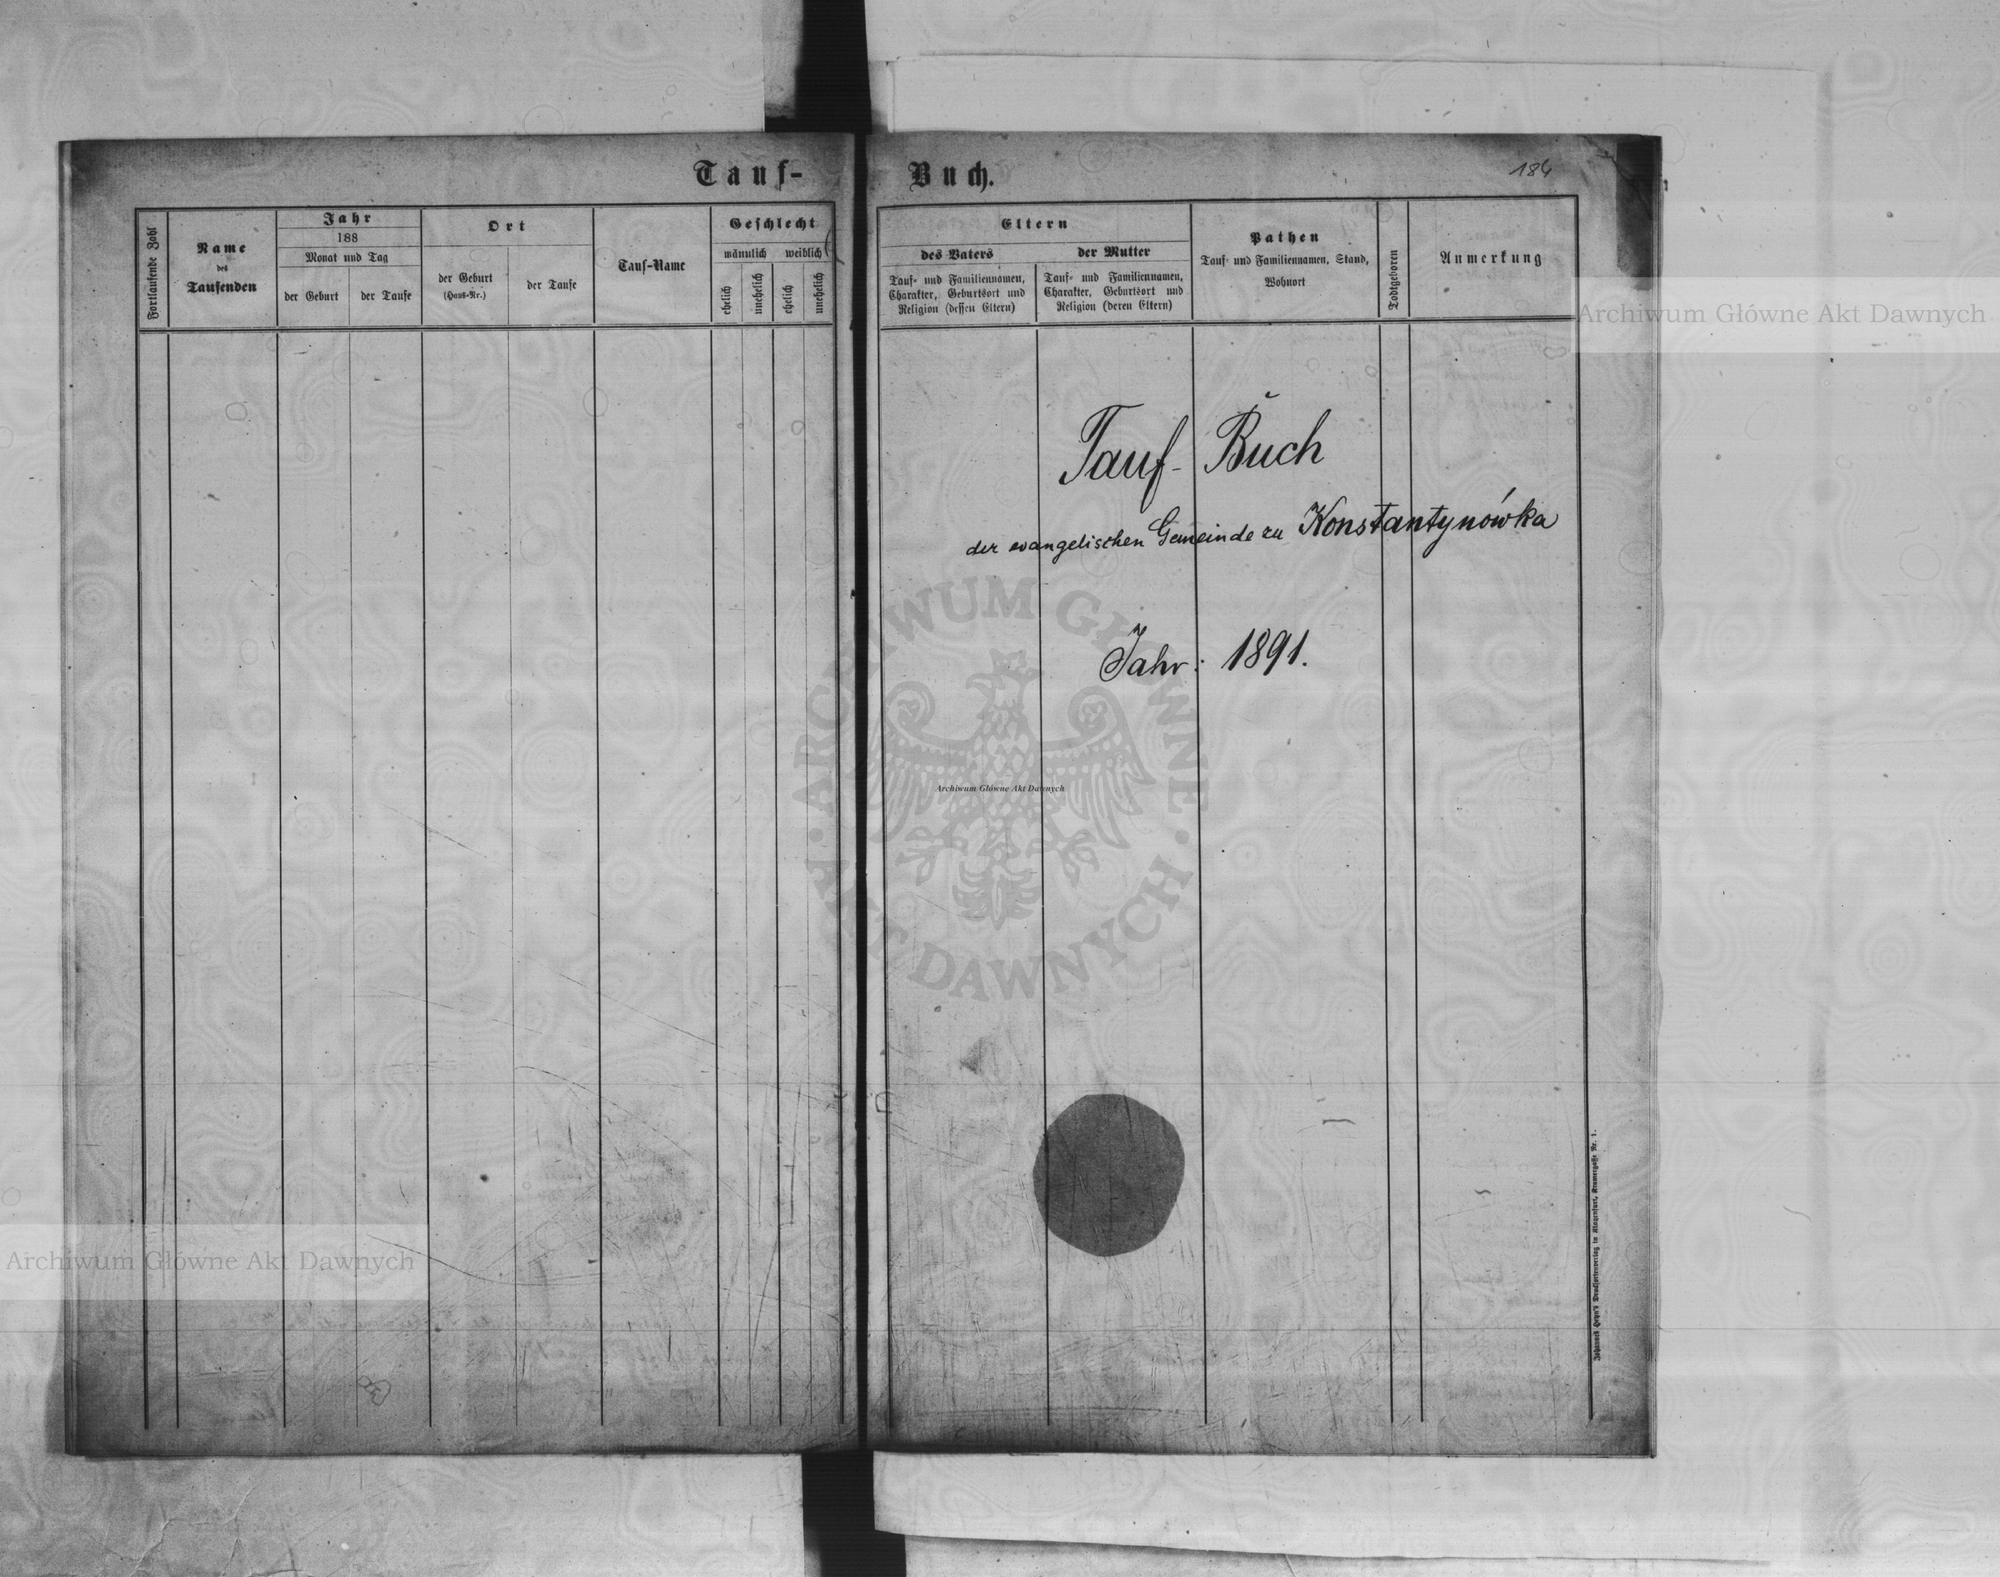 Tauf-
Buch.
184
Fortlaufende Zahl
Name
des
Taufenden
Jahr
188
Monat und Tag
der Geburt
der Taufe
Ort
der Geburt
(Haus-Nr.)
der Taufe
Tauf-Name
Geschlecht
männlich
weiblich
ehelich
unehelich
ehelich
unehelich
Eltern
des Vaters
Tauf- und Familiennamen,
Charakter, Geburtsort und
Religion (dessen Eltern)
der Mutter
Tauf- und Familiennamen,
Charakter, Geburtsort und
Religion (deren Eltern)
Pathen
Tauf- und Familiennamen, Stand,
Wohnort
Todtgeboren
Anmerkung
Tauf-Buch
der evangelischen Gemeinde zu Konstantynówka
Jahr: 1891.
Archiwum Główne Akt Dawnych
ARCHIWUM GŁÓWNE
AKT DAWNYCH
Archiwum Główne Akt Dawnych
Archiwum Główne Akt Dawnych